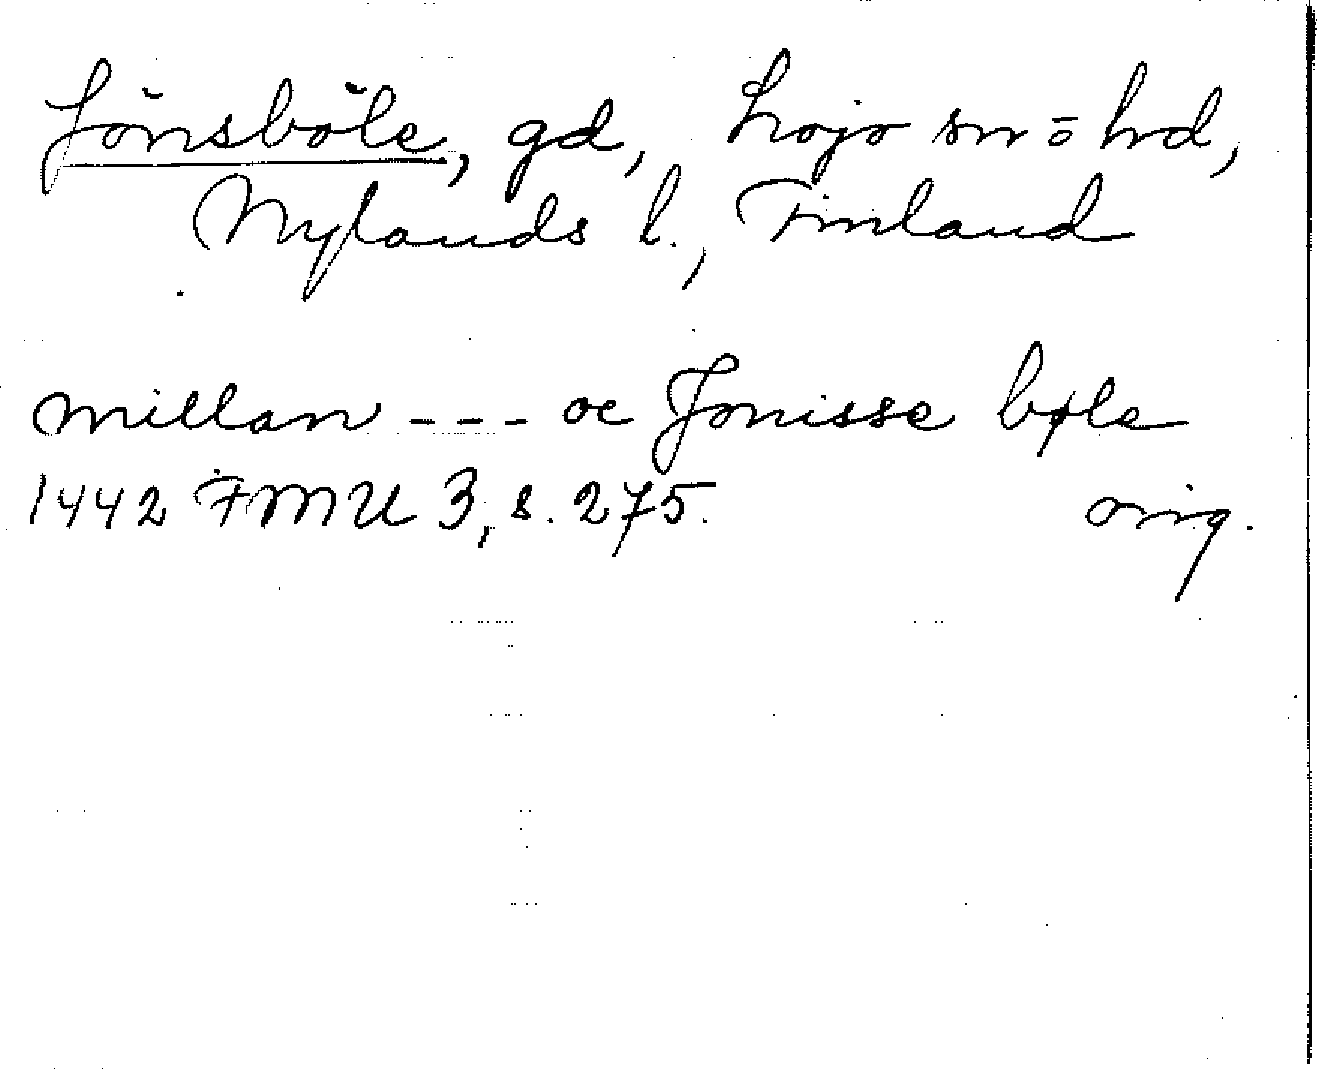 Jönsböle, gd, Lojo sn = hd,
Nylands l., Finland
millan --- oc Jonisse bøle
1442 FMU 3, s. 275. orig.